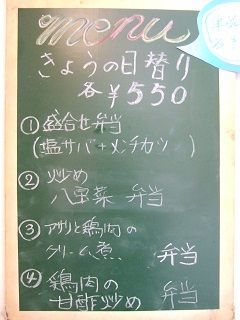 menu
きょうの日替り
各¥550
①盛合せ弁当
(塩サバ+メンチカツ)
②炒め
八宝菜 弁当
③アサリと鶏肉の
クリーム煮 弁当
④鶏肉の
甘酢炒め 弁当